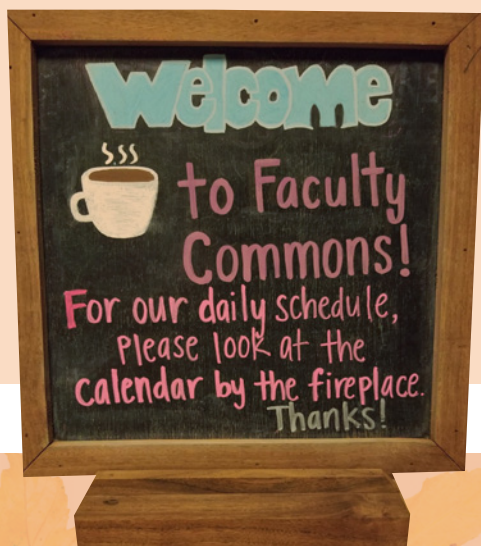 Welcome
to Faculty
Commons!
For our daily schedule,
Please look at the
calendar by the fireplace.
Thanks!